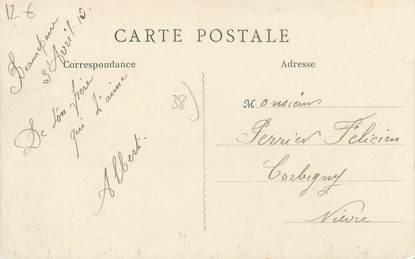 12-6
CARTE POSTALE
Correspondance
Adresse
3 Avril
De ton frère
qui t'aime
Albert.
38)
Monsieur
Perrier Félicien
Corbigny
Nièvre